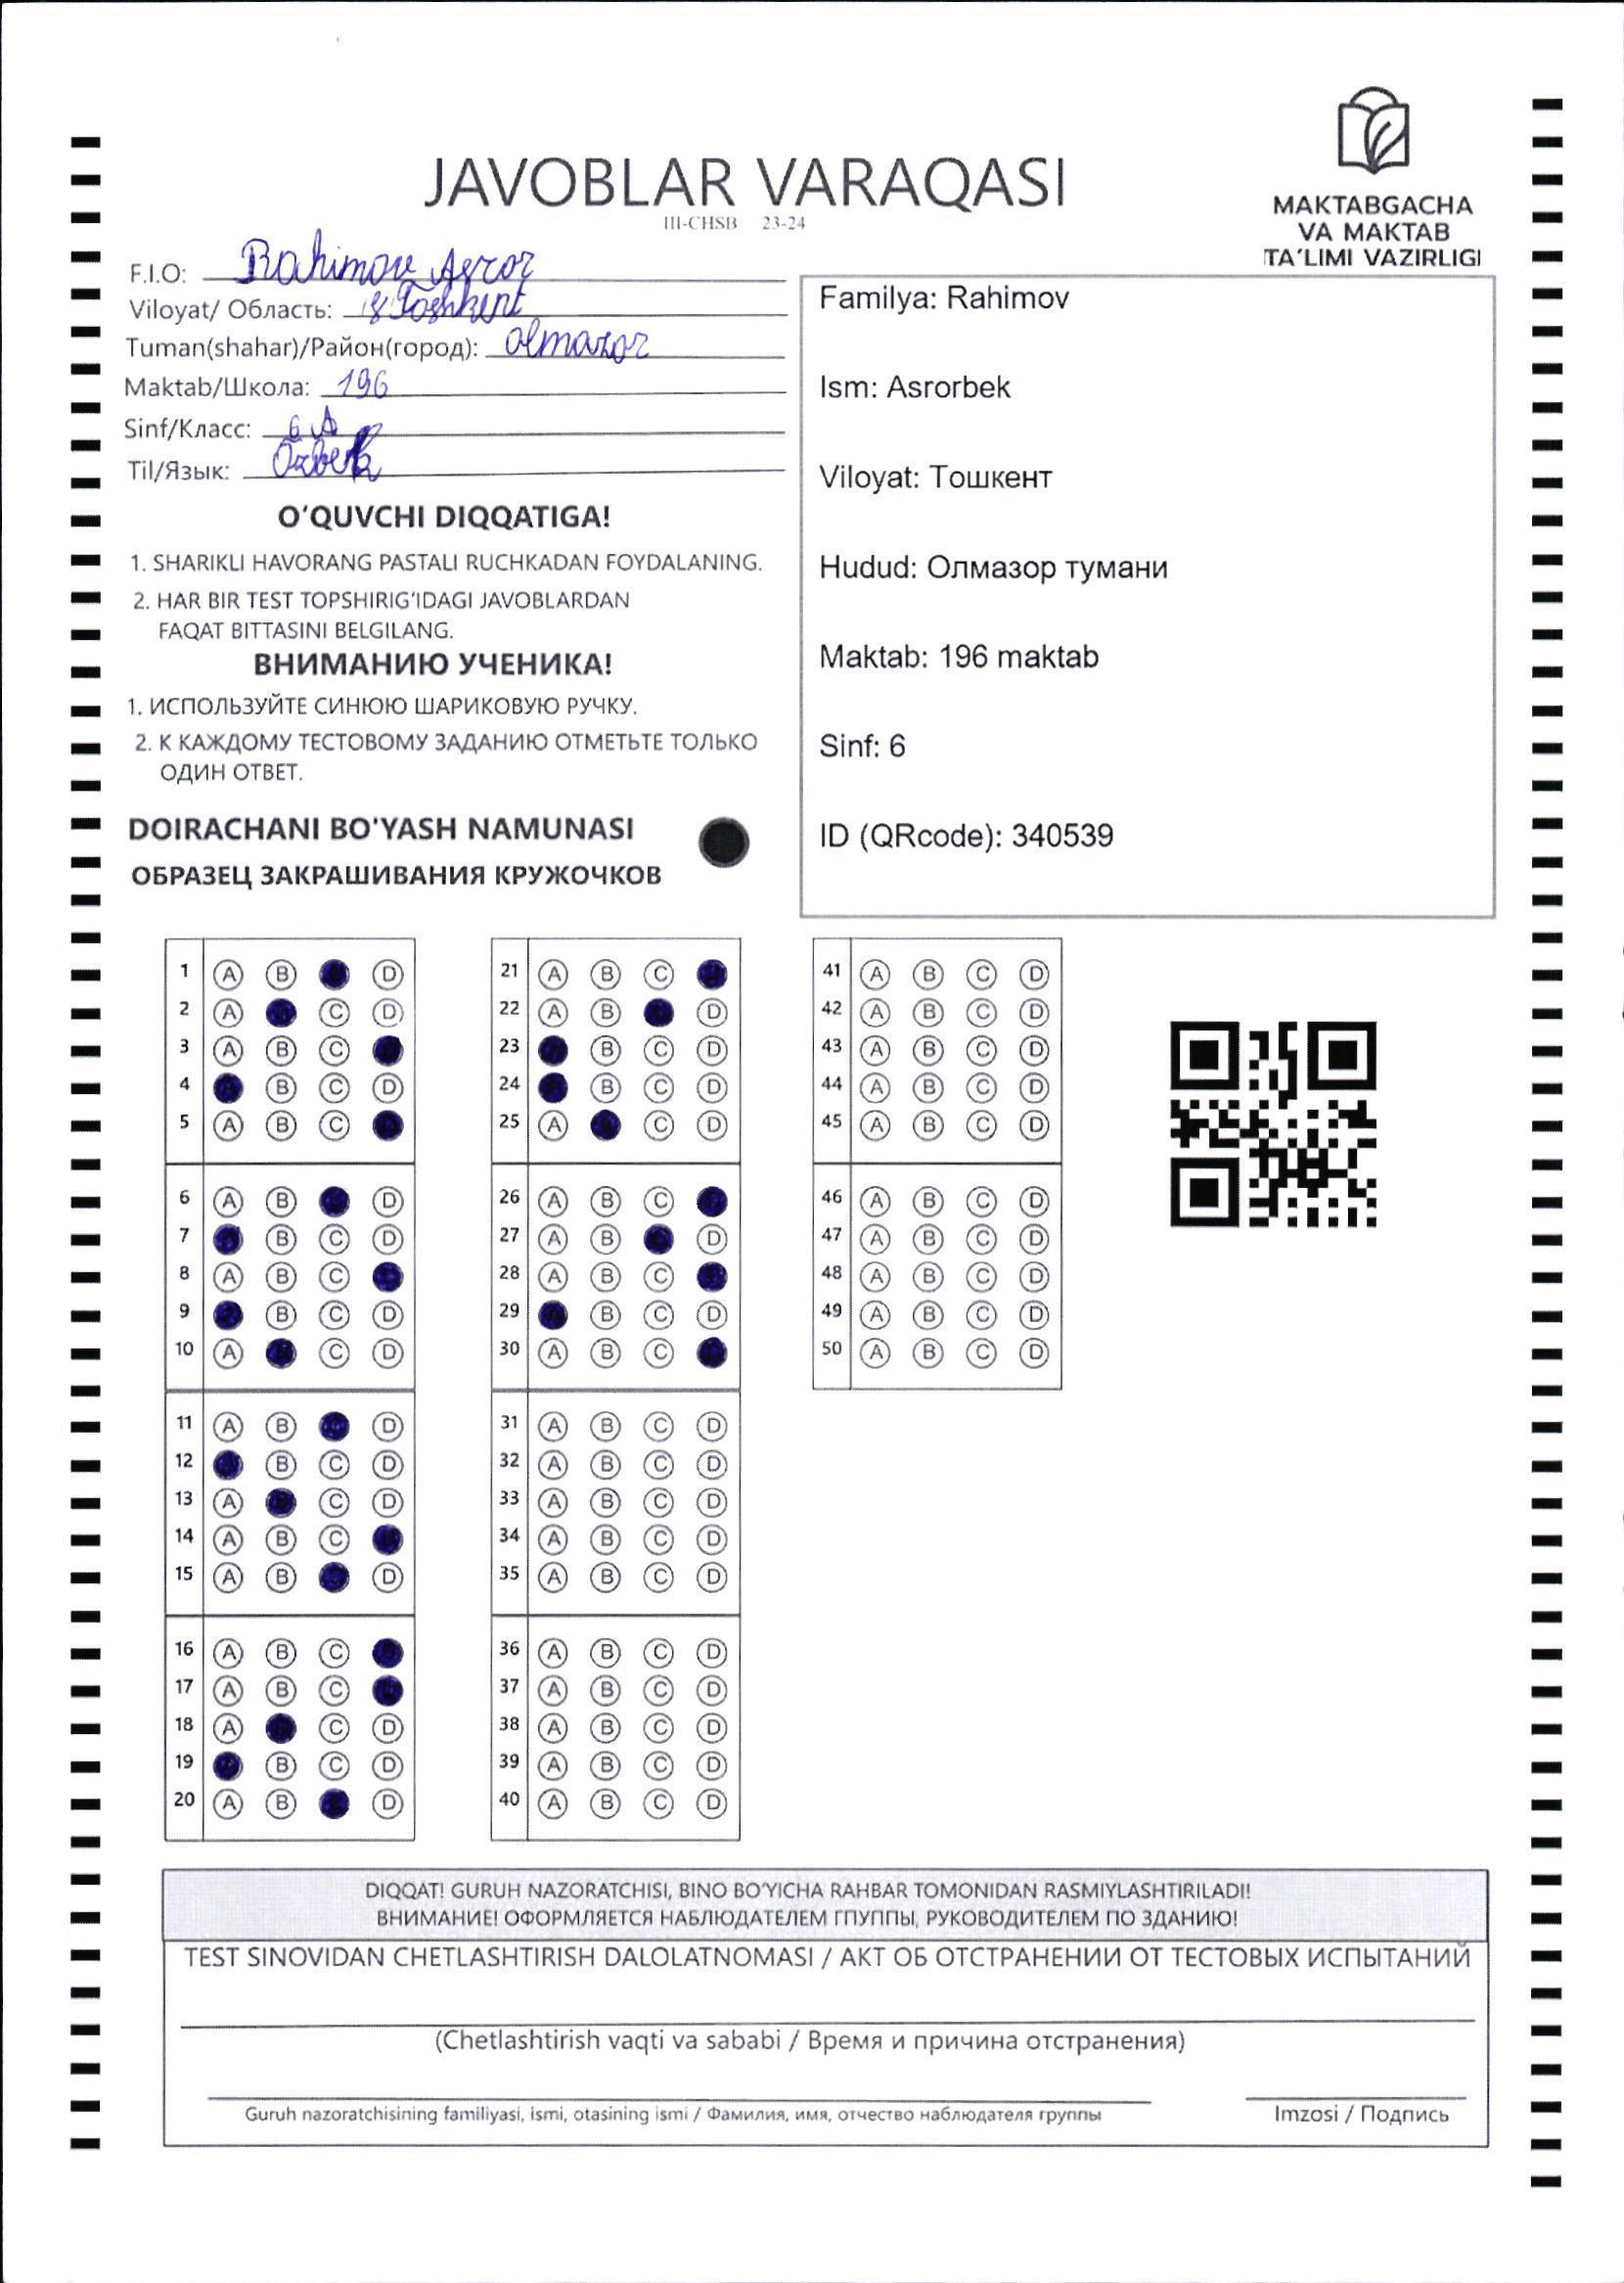 JAVOBLAR VARAQASI
III-CHSB 23-24
MAKTABGACHA
VA MAKTAB
TA'LIMI VAZIRLIGI
F.I.O: Rahimov Asror
Viloyat/ Область: Toshkent
Tuman(shahar)/Район(город): Olmazor
Maktab/Школа: 196
Sinf/Класс: 6 A
Til/Язык: Özbek
O'QUVCHI DIQQATIGA!
1. SHARIKLI HAVORANG PASTALI RUCHKADAN FOYDALANING.
2. HAR BIR TEST TOPSHIRIG'IDAGI JAVOBLARDAN
FAQAT BITTASINI BELGILANG.
ВНИМАНИЮ УЧЕНИКА!
1. ИСПОЛЬЗУЙТЕ СИНЮЮ ШАРИКОВУЮ РУЧКУ.
2. К КАЖДОМУ ТЕСТОВОМУ ЗАДАНИЮ ОТМЕТЬТЕ ТОЛЬКО
ОДИН ОТВЕТ.
DOIRACHANI BO'YASH NAMUNASI
ОБРАЗЕЦ ЗАКРАШИВАНИЯ КРУЖОЧКОВ
Familya: Rahimov
Ism: Asrorbek
Viloyat: Тошкент
Hudud: Олмазор тумани
Maktab: 196 maktab
Sinf: 6
ID (QRcode): 340539
1 A B D
2 A C D
3 A B C
4 B C D
5 A B C
6 A B D
7 B C D
8 A B C
9 B C D
10 A C D
11 A B D
12 B C D
13 A C D
14 A B C
15 A B D
16 A B C
17 A B C
18 A C D
19 B C D
20 A B D
21 A B C
22 A B D
23 B C D
24 B C D
25 A C D
26 A B C
27 A B D
28 A B C
29 B C D
30 A B C
31 A B C D
32 A B C D
33 A B C D
34 A B C D
35 A B C D
36 A B C D
37 A B C D
38 A B C D
39 A B C D
40 A B C D
41 A B C D
42 A B C D
43 A B C D
44 A B C D
45 A B C D
46 A B C D
47 A B C D
48 A B C D
49 A B C D
50 A B C D
DIQQAT! GURUH NAZORATCHISI, BINO BO'YICHA RAHBAR TOMONIDAN RASMIYLASHTIRILADI!
ВНИМАНИЕ! ОФОРМЛЯЕТСЯ НАБЛЮДАТЕЛЕМ ГПУППЫ, РУКОВОДИТЕЛЕМ ПО ЗДАНИЮ!
TEST SINOVIDAN CHETLASHTIRISH DALOLATNOMASI / АКТ ОБ ОТСТРАНЕНИИ ОТ ТЕСТОВЫХ ИСПЫТАНИЙ
(Chetlashtirish vaqti va sababi / Время и причина отстранения)
Guruh nazoratchisining familiyasi, ismi, otasining ismi / Фамилия, имя, отчество наблюдателя группы
Imzosi / Подпись